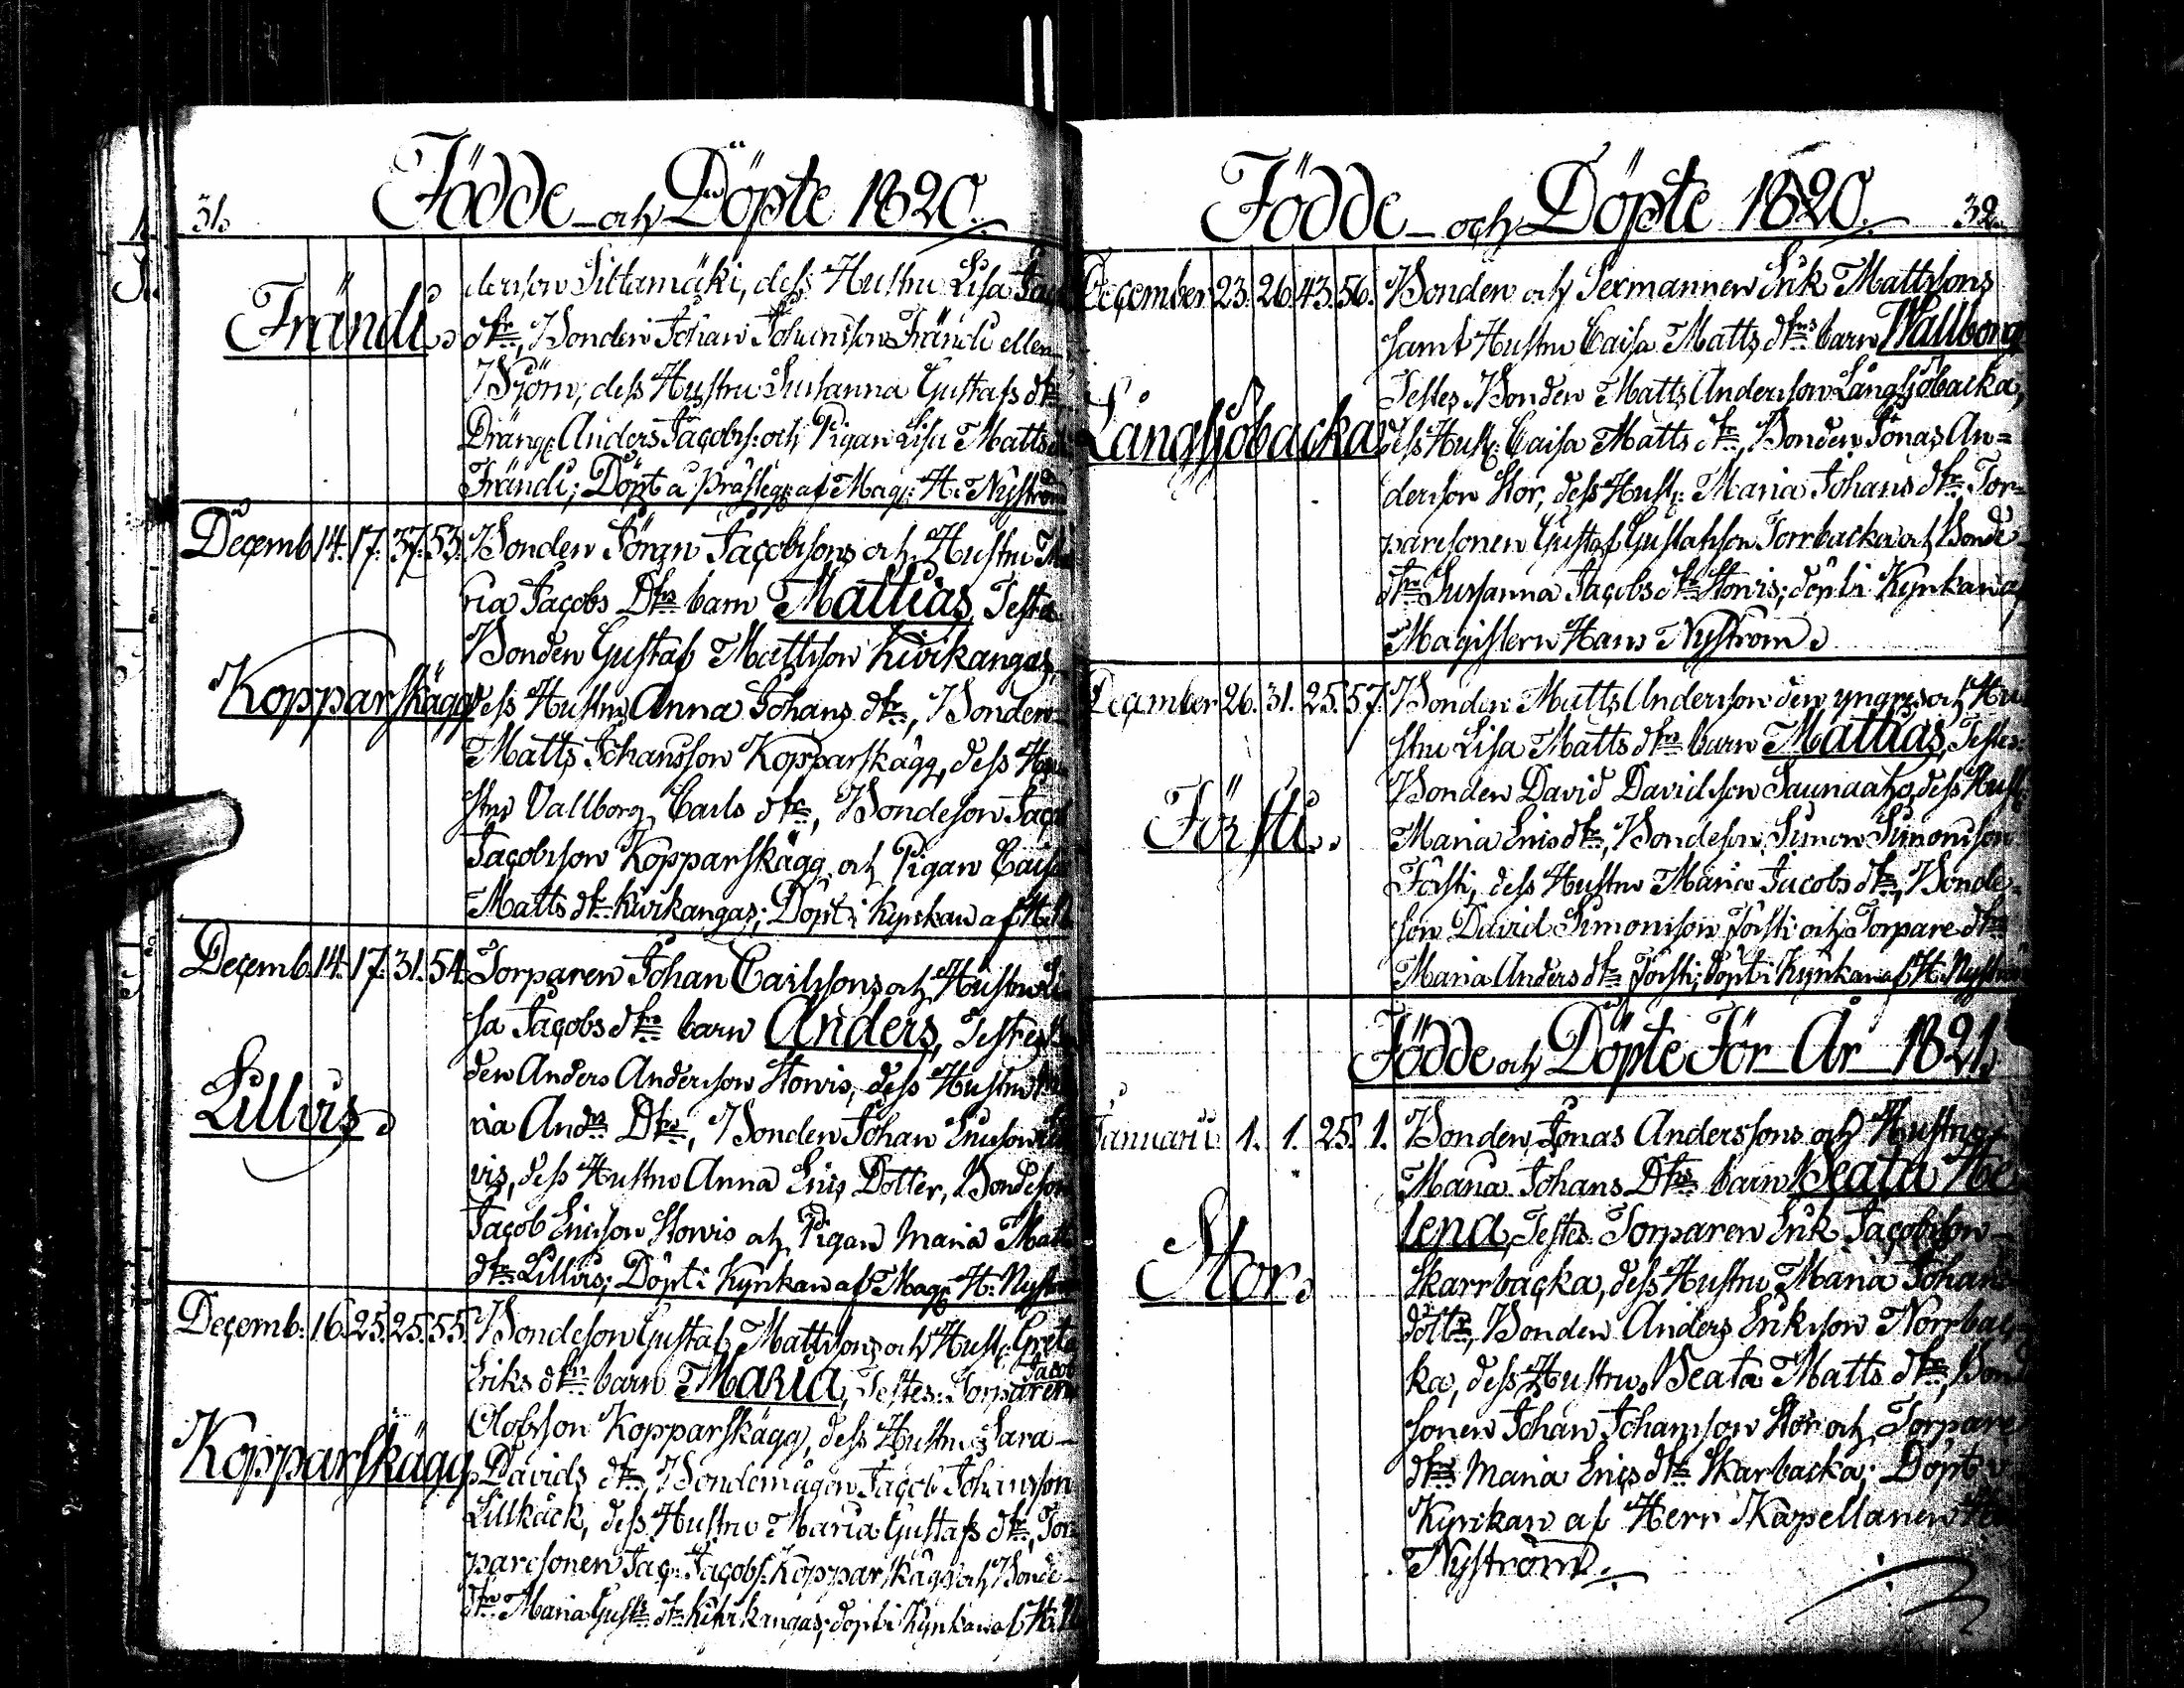 31.
Födde och Döpte 1820.
Frändi.
derson Siltamäki, dess Hustru Lisa Jac
dtr, Bonden Johan Johansson Frändi eller
Björn, dess Hustru Susanna Gustafs dtr
Dräng: Anders Jacobs: och Pigan Lisa Matts
Frändi; Döpt a Prästeg: af Mag: H. Nyström
Decemb. 14. 17. 37. 53. Bonden Jöran Jacobsons och Hustru Ma
ria Jacobs Dtrs barn Mattias, Testes
Bonden Gustaf Mattsson Kivikangas,
Kopparskägg dess Hustru Anna Johans dtr, Bonden
Matts Johansson Kopparskägg, dess Hu
stru Vallborg Carls dtr, Bondeson Jacob
Jacobsson Kopparskägg och Pigan Caisa
Matts dtr Kivikangas; Döpt i Kyrkan af H. N
Decemb. 14. 17. 31. 54. Torparen Johan Carlssons och Hustru Li
sa Jacobs dtrs barn Anders, Testes Bon
den Anders Anderson Storvis, dess Hustru Ma
Lillvis.
ria Andrs Dtr, Bonden Johan Ericson Lill
vis, dess Hustru Anna Erics Dotter, Bondeson
Jacob Ericson Storvis och Pigan Maria Matts
dtr Lillvis; Döpt i Kyrkan af Mag: H. Nyström
Decemb. 16. 25. 25. 55. Bondeson Gustaf Mattssons och Hust: Greta
Eriks dtrs barn Maria, Testes: Torparen Jacob
Olofsson Kopparskägg, dess Hustru Sara
Kopparskägg. Davids dtr, Bondemågen Jacob Johansson
Lillkäck, dess Hustru Maria Gustafs dtr, Tor
paresonen Jac: Jacobs: Kopparskägg och Bonde
dtr Maria Gustfs dtr Kivikangas; döpt i Kyrkan af H. N
Födde och Döpte 1820. 32.
December 23. 26. 43. 56. Bonden och Sexmannen Erik Mattsons
samt Hustru Caisa Matts dtrs barn Wallborg
Testes Bonden Matts Anderson Långsjöbacka,
Långsjöbacka dess Hust: Caisa Matts dtr, Bonden Jonas An=
derson Stor, dess Hust: Maria Johans dtr, Tor=
paresonen Gustaf Gustafsson Torrbacka och Bonde
dtr Susanna Jacobs dtr Storvis; döpt i Kyrkan af
Magistern Hans Nyström.
December 26. 31. 25. 57. Bonden Matts Anderson den yngres och Hu
stru Lisa Matts dtrs barn Mattias, Testes:
Bonden David Davidsson Saunaaho, dess Hust:
Försti.
Maria Erics dtr, Bondeson Simon Simonson
Försti, dess Hustru Maria Jacobs dtr, Bonde=
son David Simonson Försti och Torpare dtr
Maria Anders dtr Försti; döpt i Kyrkan af H. Nyström
Födde och Döpte För År 1821.
Januarii 1. 1. 25. 1. Bonden Jonas Anderssons och Hustru
Maria Johans Dtrs barn Beata He
lena, Testes. Torparen Erik Jacobsson
Stor.
Skarrbacka, dess Hustru Maria Johans
dottr, Bonden Anders Erikson Norrbac
ka, dess Hustru Beata Matts dtr, Bonde
sonen Johan Johansson Stor och Torpare
dtr Maria Erics dtr Skarbacka; Döpt i
Kyrkan af Herr Kapellanen
Nyström.